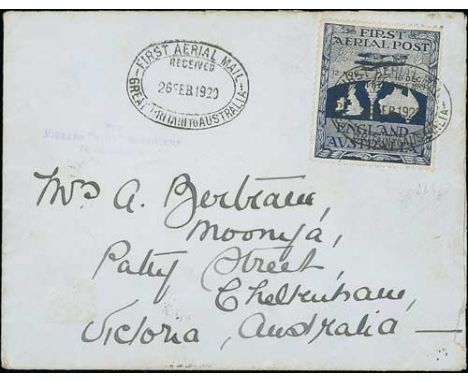 FIRST AERIAL MAIL
RECEIVED
26 FEB 1920
GREAT BRITAIN TO AUSTRALIA
FIRST
AERIAL POST
ENGLAND
AUSTRALIA
FIRST AERIAL
FEB 1920
AUSTRALIA
Mrs A. Bertram,
Street,
Cheltenham,
Victoria, Australia